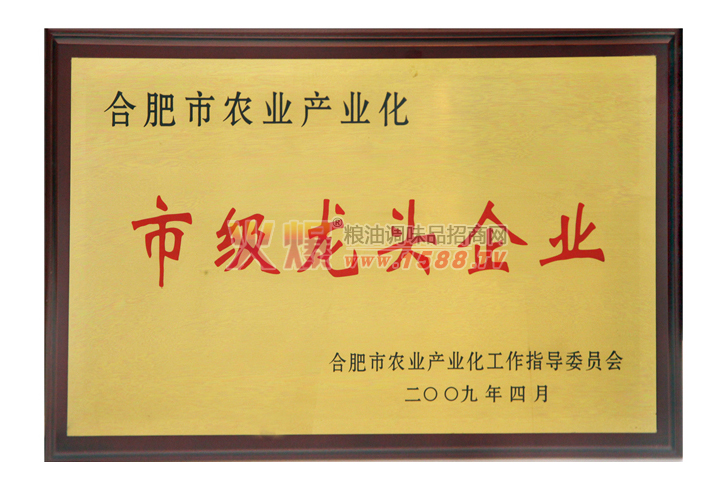 合肥市农业产业化
市级龙头企业
火爆®粮油调味品招商网
www.1588.TV
合肥市农业产业化工作指导委员会
二〇〇九年四月